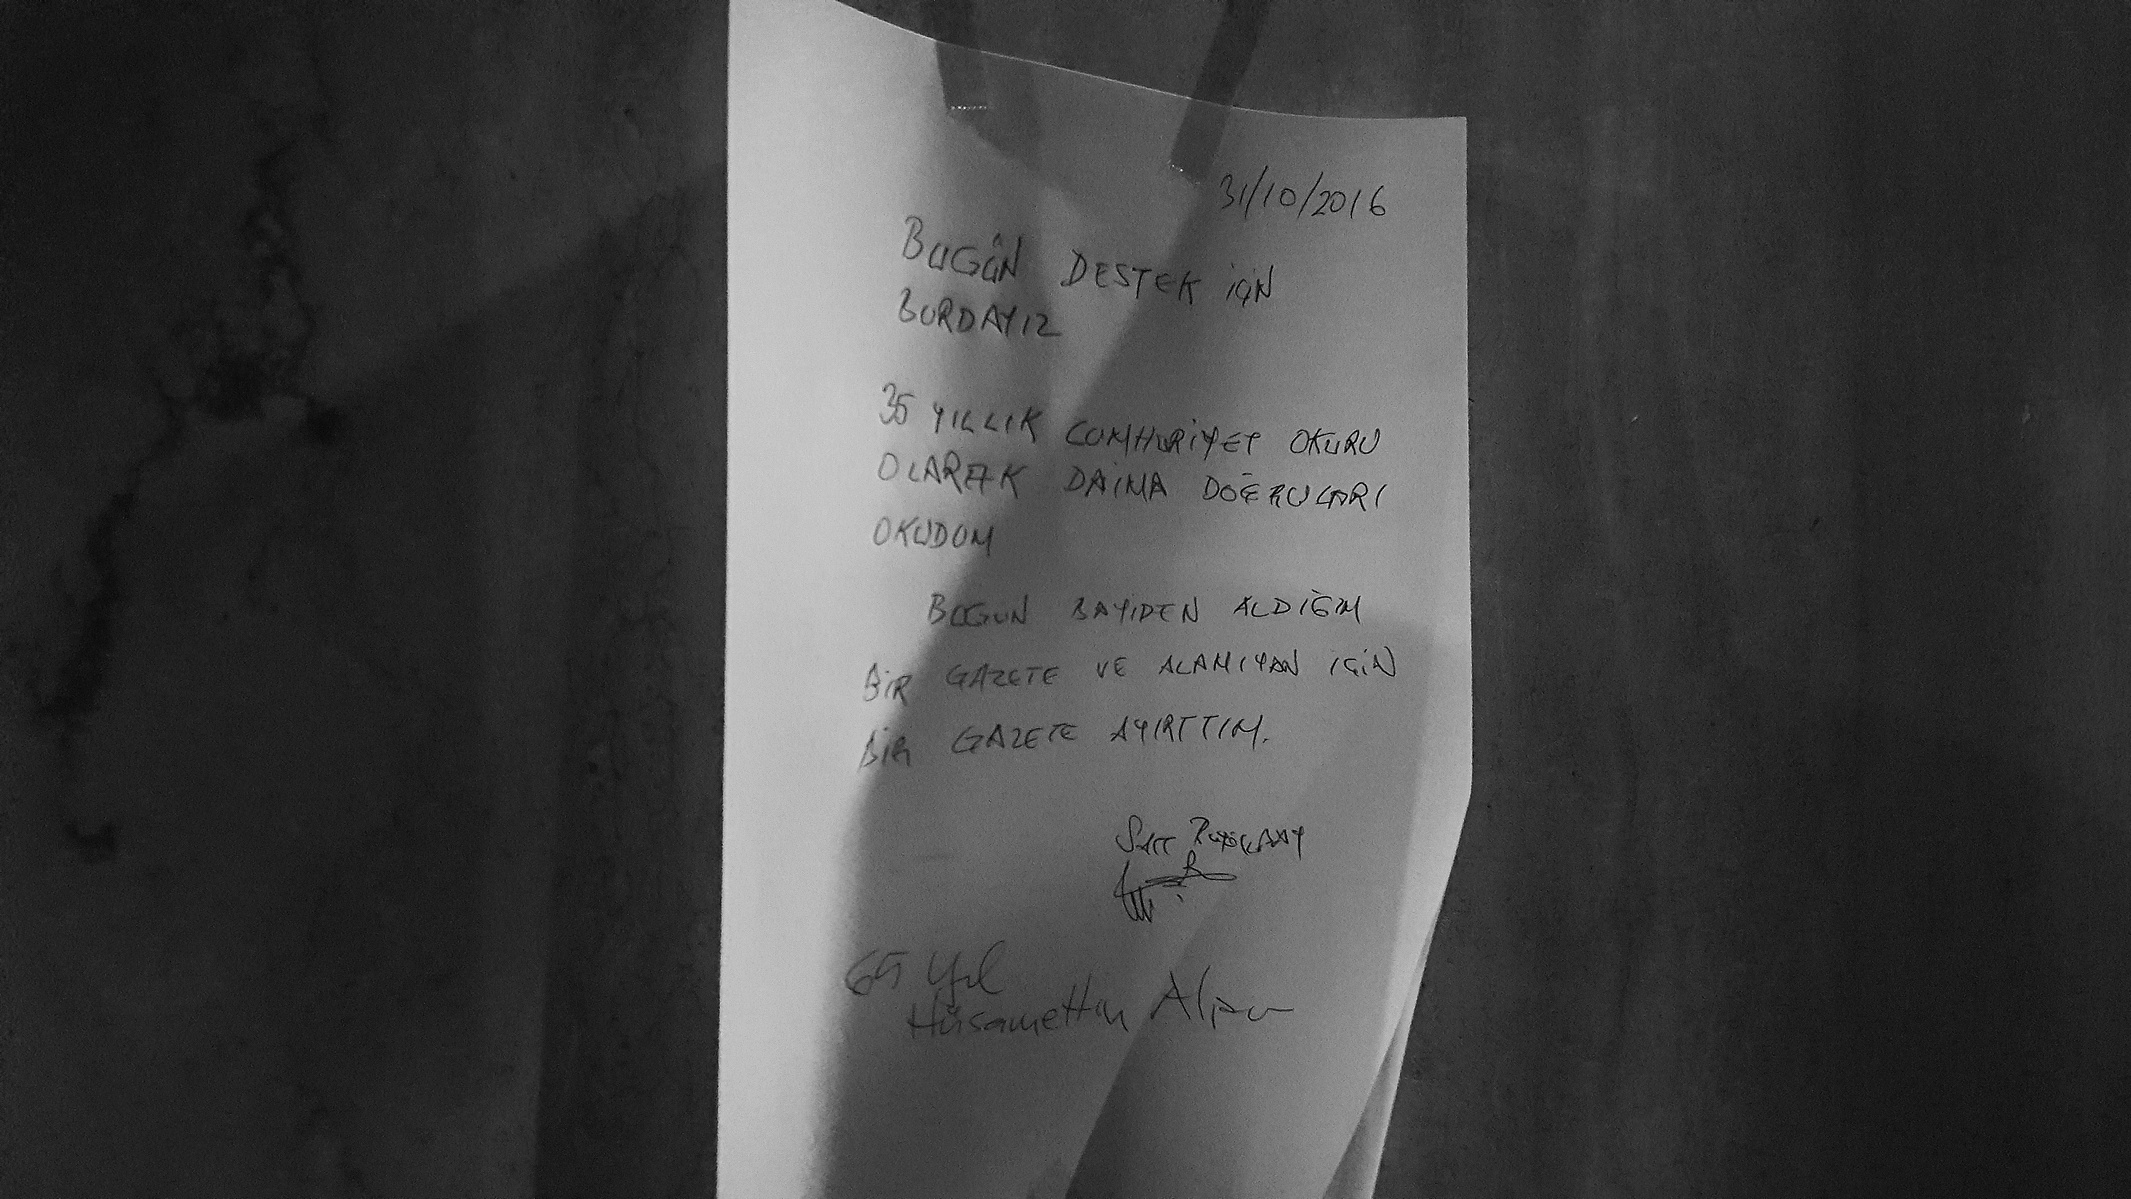 31/10/2016
BUGÜN DESTEK İÇİN
BURDAYIZ
35 YILLIK CUMHURİYET OKURU
OLARAK DAİMA DOĞRULARI
OKUDUM
BUGUN BAYİDEN ALDIĞIM
BİR GAZETE VE ALAMIYAN İÇİN
BİR GAZETE AYIRTTIM.
65 Yıl
Hüsamettin